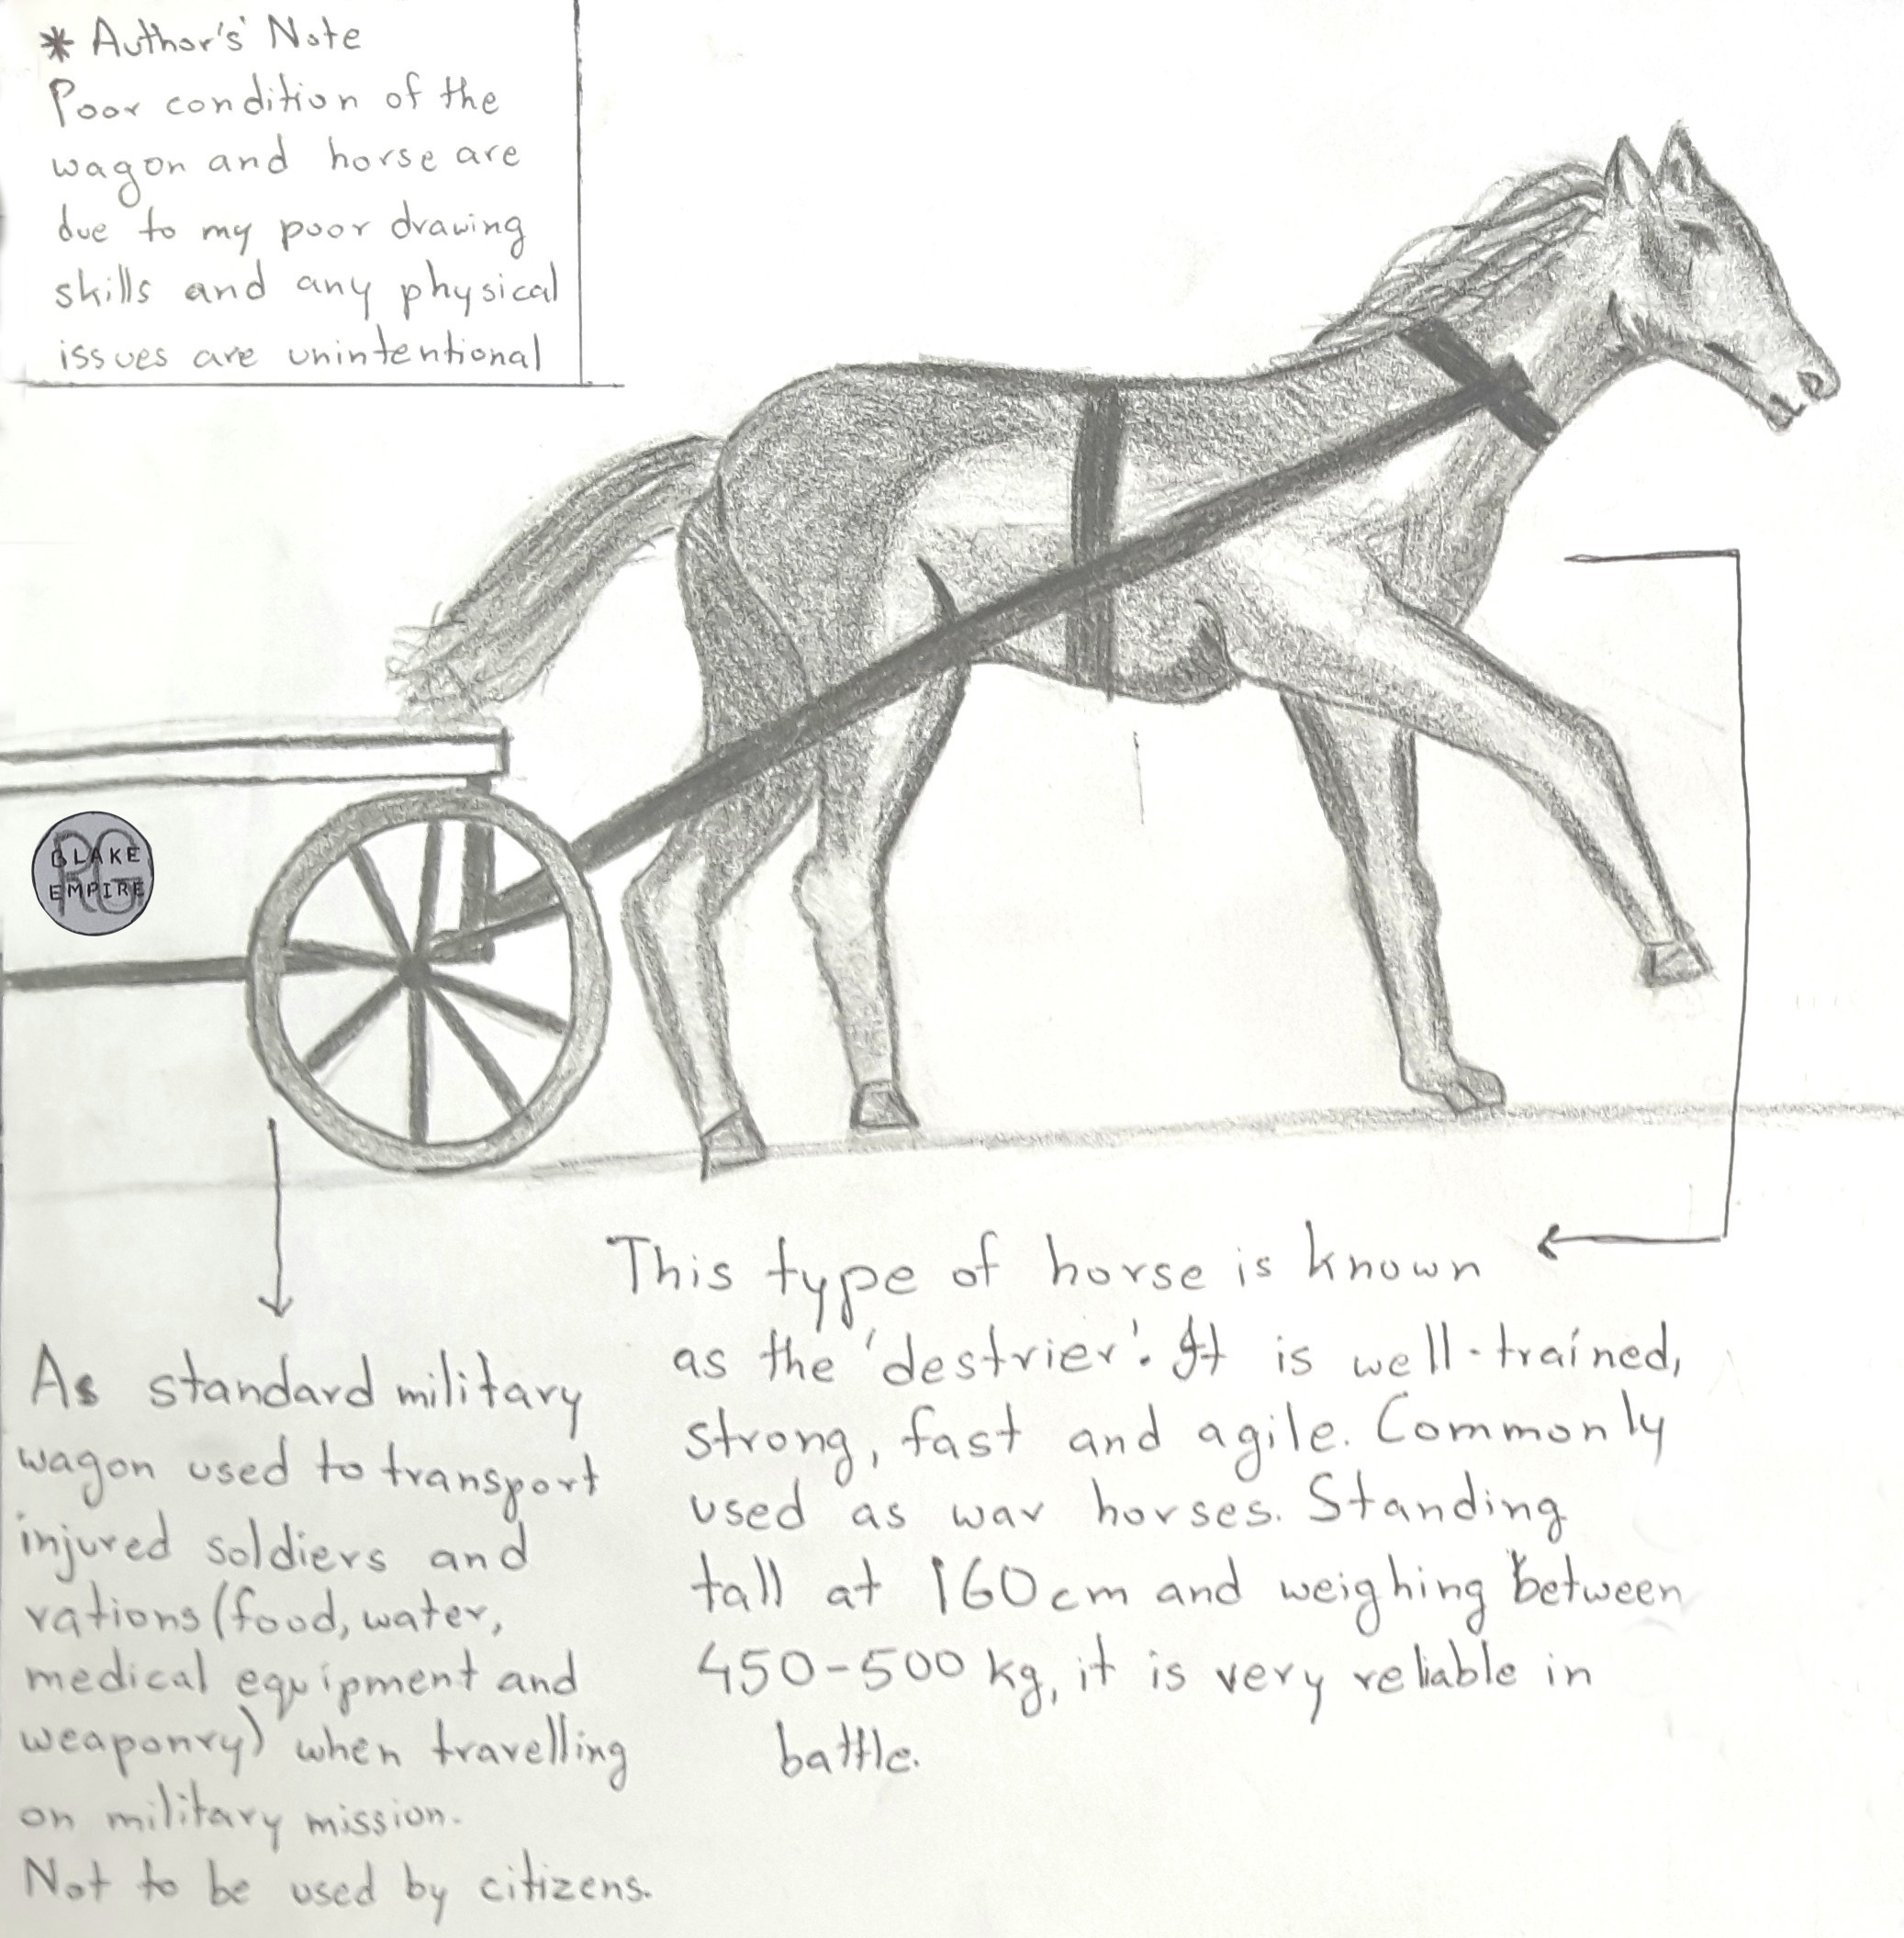 * Author's' Note
Poor condition of the
wagon and horse are
due to my poor drawing
skills and any physical
issues are unintentional
RG
BLAKE
EMPIRE
This type of horse is known
as the 'destrier'. It is well-trained,
strong, fast and agile. Commonly
used as war horses. Standing
tall at 160cm and weighing between
450-500 kg, it is very reliable in
battle.
As standard military
wagon used to transport
injured soldiers and
rations (food, water,
medical equipment and
weaponry) when travelling
on military mission.
Not to be used by citizens.